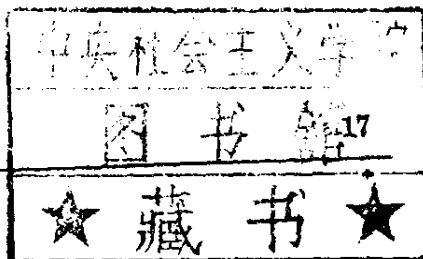 中央社会主义学院
图书馆
17
★藏书★